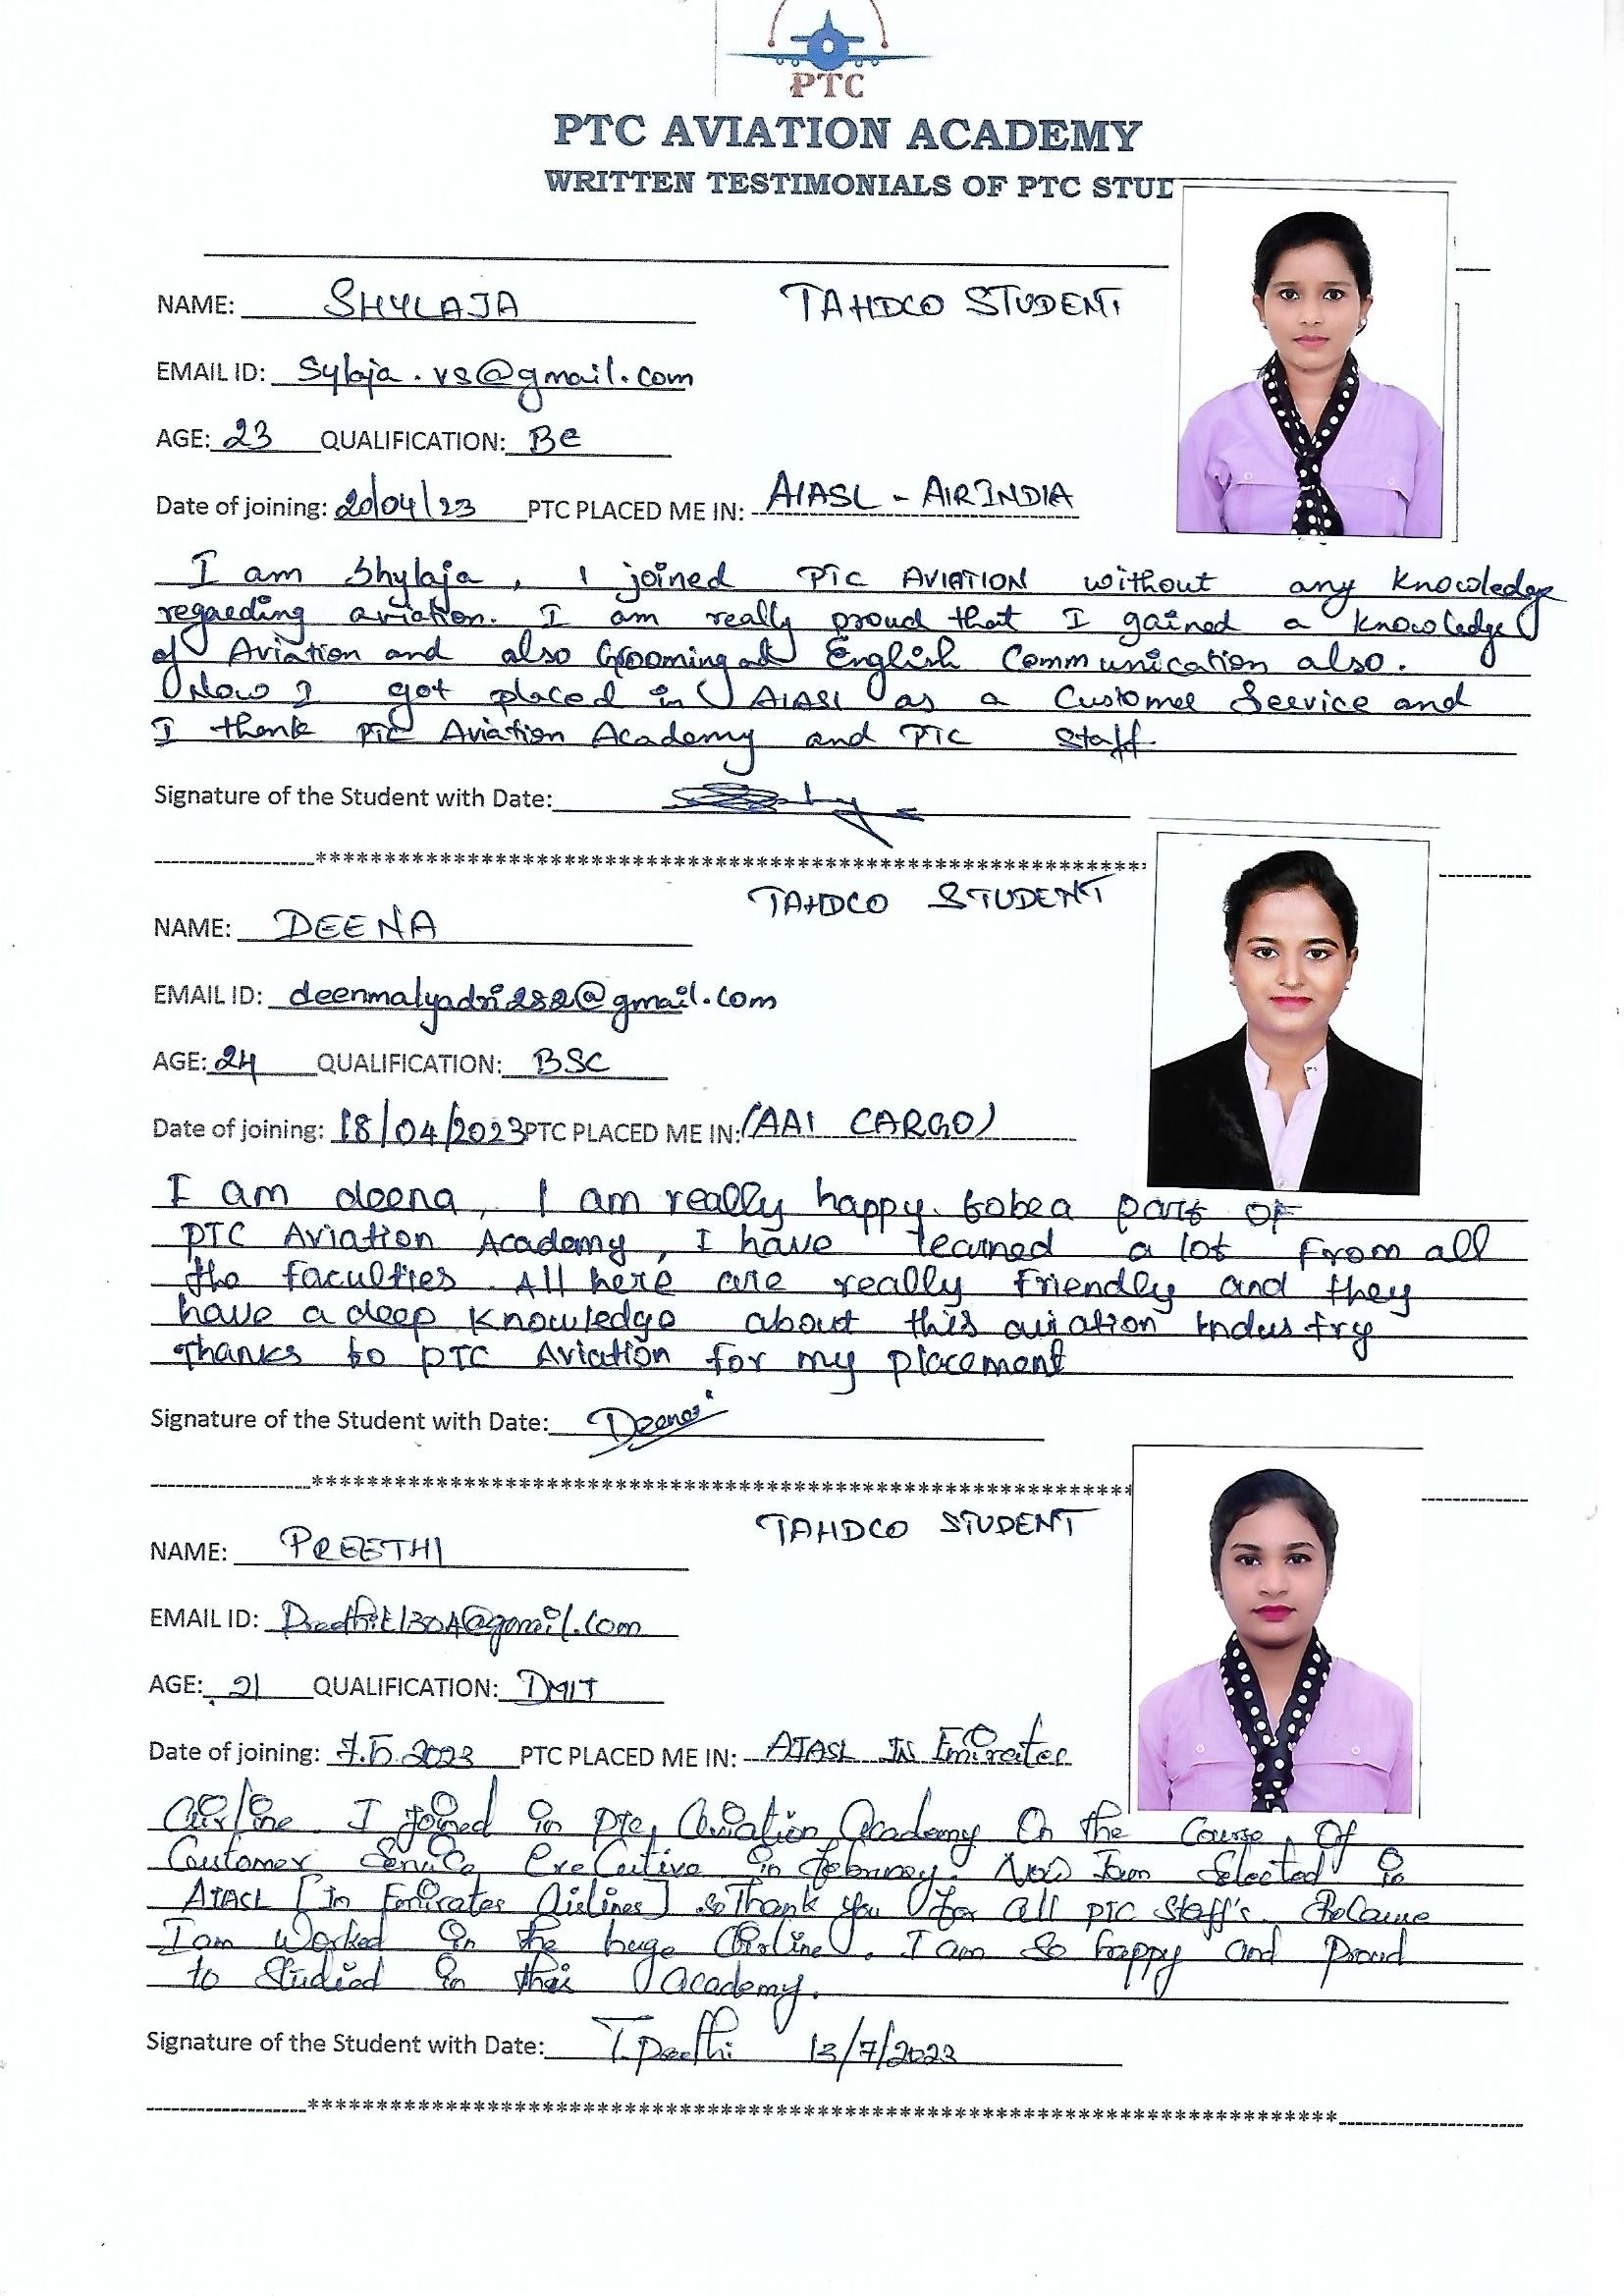 PTC
PTC AVIATION ACADEMY
WRITTEN TESTIMONIALS OF PTC STUD
NAME: SHYLAJA TAHDCO STUDENT
EMAIL ID: Sylaja.vs@gmail.com
AGE: 23 QUALIFICATION: BE
Date of joining: 20/04/23 PTC PLACED ME IN: AIASL - AIRINDIA
I am Shylaja, I joined PTC AVIATION without any knowledge
regarding aviation. I am really proud that I gained a knowledge
of Aviation and also Grooming and English Communication also.
Now I got placed in AIASL as a Customer Service and
I thank PTC Aviation Academy and PTC Staff
Signature of the Student with Date:
-------------------************************************************************
TAHDCO STUDENT
NAME: DEENA
EMAIL ID: deenmalyadri282@gmail.com
AGE: 24 QUALIFICATION: BSC
Date of joining: 18/04/2023 PTC PLACED ME IN: (AAI CARGO)
I am deena, I am really happy. to be a part of
PTC Aviation Academy, I have learned a lot from all
the faculties. All here are really friendly and they
have a deep knowledge about this aviation industry
Thanks to PTC Aviation for my placement
Signature of the Student with Date: Deena
-------------------************************************************************
TAHDCO STUDENT
NAME: PREETHI
EMAIL ID: @gmail.com
AGE: 21 QUALIFICATION: DMIT
Date of joining: 7.5.2023 PTC PLACED ME IN: AIASL IN Emirates
Airline. I joined in PTC, Aviation Academy On the Course Of
Coustomer Service Executive in February. Now I am Selected in
AIASL [In Emirates Airlines] so Thank you for all PTC Staff's. Because
I am Worked in the huge Airline. I am so happy and Proud
to Studied in this academy.
Signature of the Student with Date: T.Preethi 13/7/2023
-------------------************************************************************